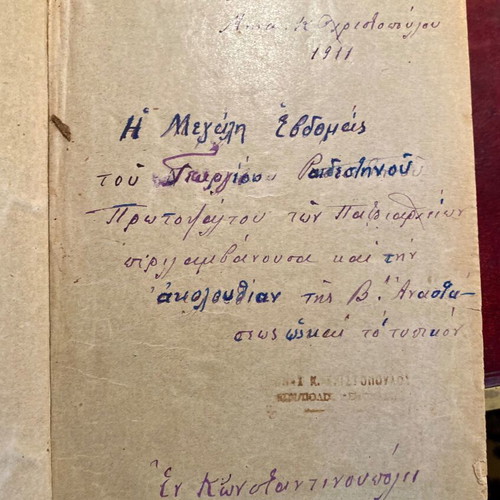 Κ Χριστοπούλου
1911
Ἡ Μεγάλη Ἑβδομάς
τοῦ Γεωργίου Ραιδεστηνοῦ
Πρωτοψάλτου τῶν Πατριαρχείων
περιλαμβάνουσα καὶ τὴν
ἀκολουθίαν τῆς Β. Ἀναστά-
σεως ὡς καὶ τὸ τυπικόν
Κ. ΧΡΙΣΤΟΠΟΥΛΟΥ
Ἐν Κωνσταντινουπόλει